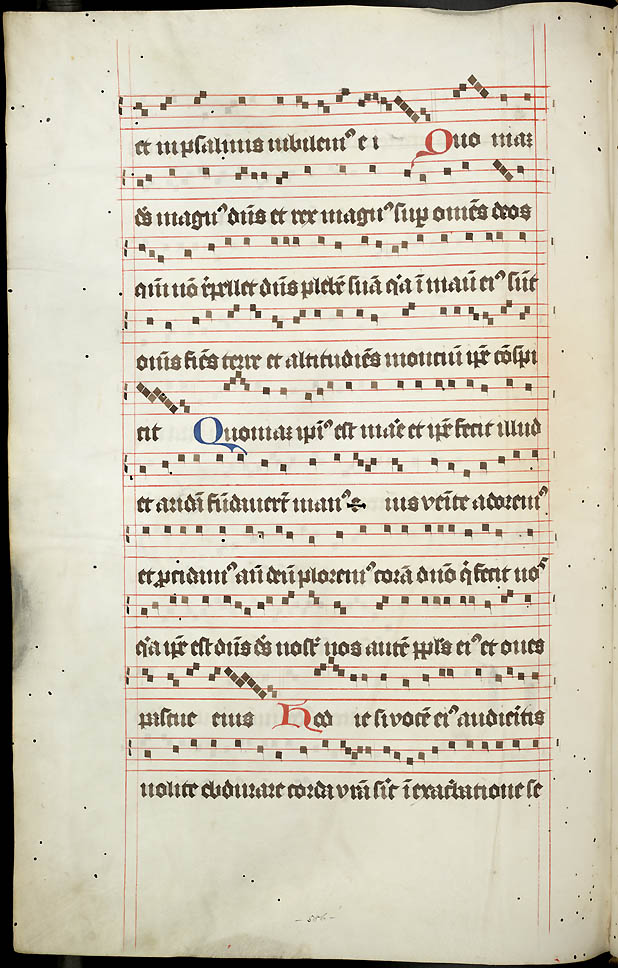 et in psalmis iubilem⁹ e i Quo niaz
ds̄ magn⁹ dn̄s et rex magn⁹ sup om̄es deos
qm̄ nō r̄pellet dn̄s plebē suā q̄a ī manu ei⁹ sūt
om̄s fiēs terre et altitudiēs monciū ip̄e cōspi
cit Quoniaz ipi⁹ est mar̄e et ip̄e fecit illud
et aridā fūdauert̄ man⁹ e ius venite adorem⁹
et p̱cidam⁹ an̄ deū plorem⁹ corā dn̄o q̄ fecit no⁹
q̄a ip̄e est dn̄s ds̄ nostr̄ nos autē ppl̄s ei⁹ et oues
pascue eius Hod ie si vocē ei⁹ audieritis
nolite obdurare corda vr̄a sic̄ ī exac̄batione se